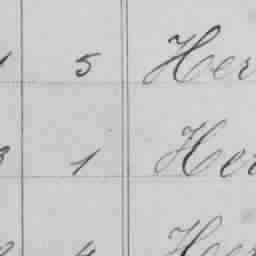 5 Her
3 1 Her
4 Her